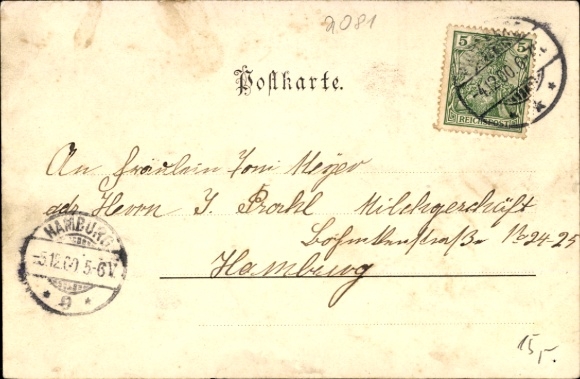 2081
5 5
REICHSPOST
4.12.00
Postkarte.
An Fräulein Toni Meyer
adr. Herrn J. Prahl Milchgeschäft
No 24-25
Hamburg
HAMBURG
5.12.00 5-6V.
15,-